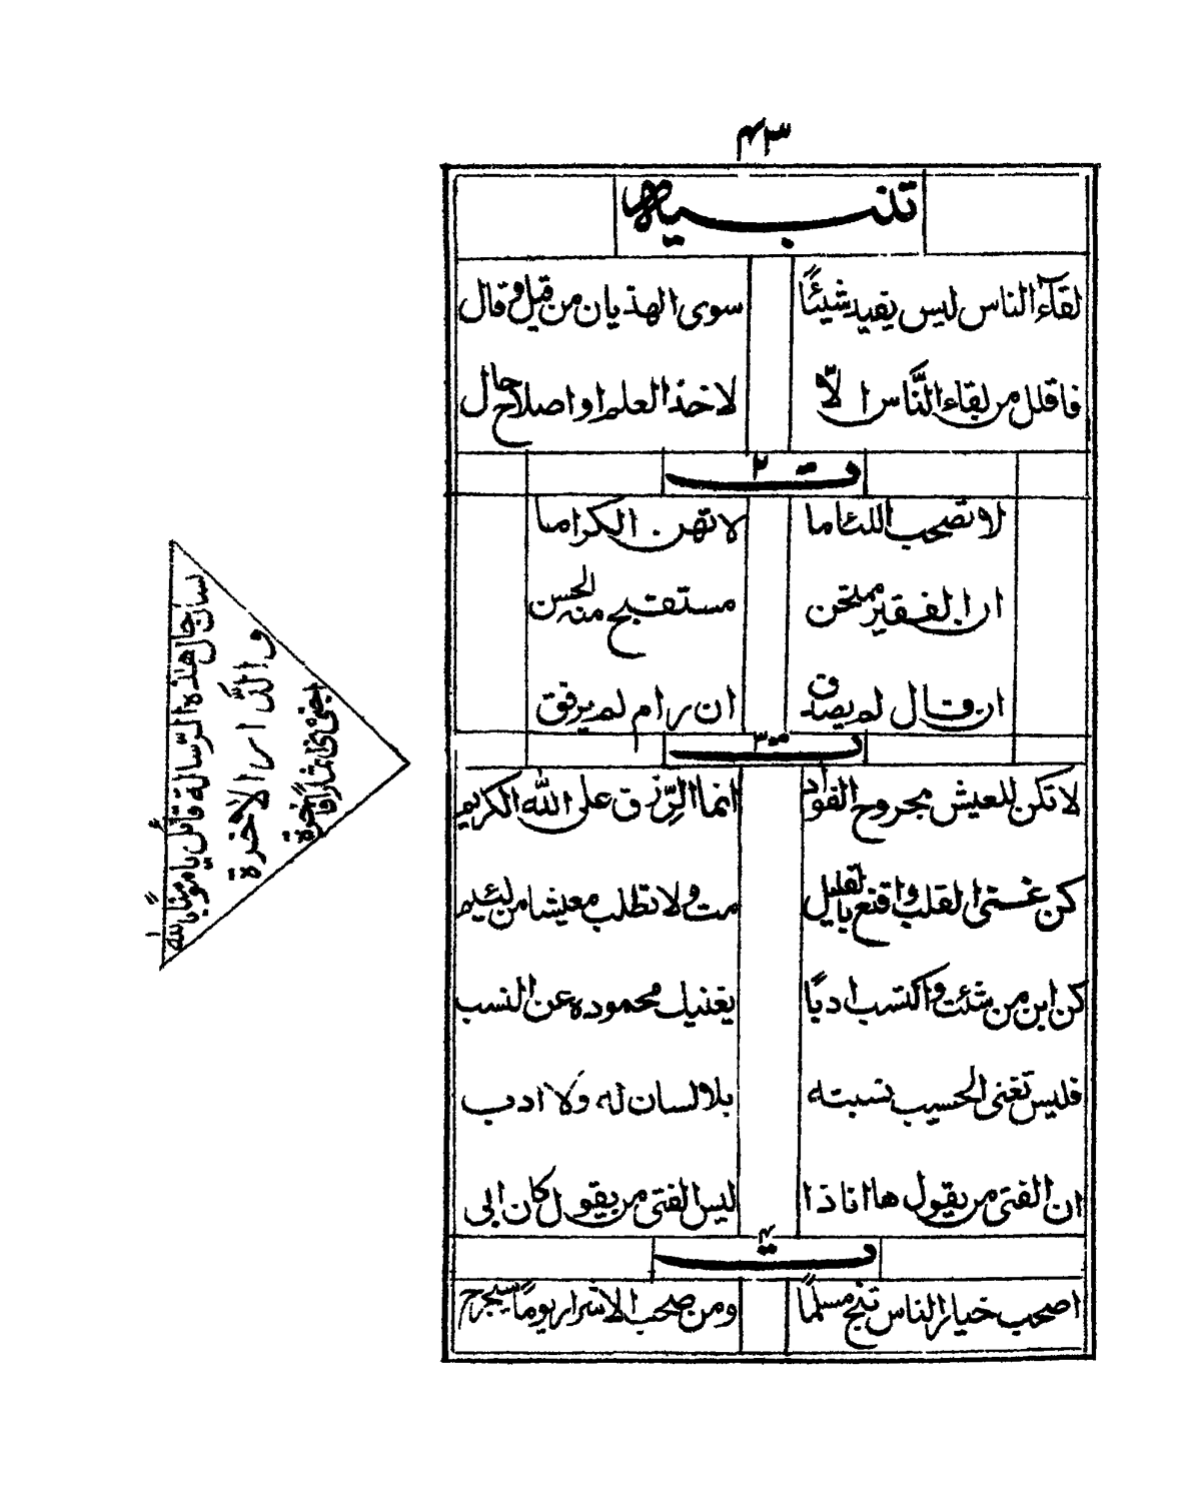 ٤٣
تنبيه
لقآء الناس ليس يفيد شيئًا سوى الهذيان من قيل و قال
فاقلل من لقاء النَّاس الّا لاخذ العلم او اصلاح حال
ت ٢
لا تصحب اللئاما لا تهن الكراما
ان الفقير ممتحن مستقبح منه الحسن
ان قال لم يصدق ان رام لم يرفق
ت ٣
لا تكن للعيش مجروح الفواد انما الرِّزق على اللّٰه الكريم
كن غنى القلب و اقنع بالقليل مت ولا تطلب معيشا من لئيم
كن ابن من شئت و اكتسب ادبًا يغنيك محموده عن النسب
فليس تغنى الحسيب نسبته بلا لسان له ولا ادب
ان الفتى من يقول ها انا ذا ليس الفتى من يقول كان ابى
ت ٤
اصحب خيار الناس تنج مسلمًا ومن صحب الاشرار يومًا سيجرح
لسان حال هذه الرّسالة قائل يا مومنًا باللّه
و الدّار الاخرة
اجنى ثمارًا فاخرة